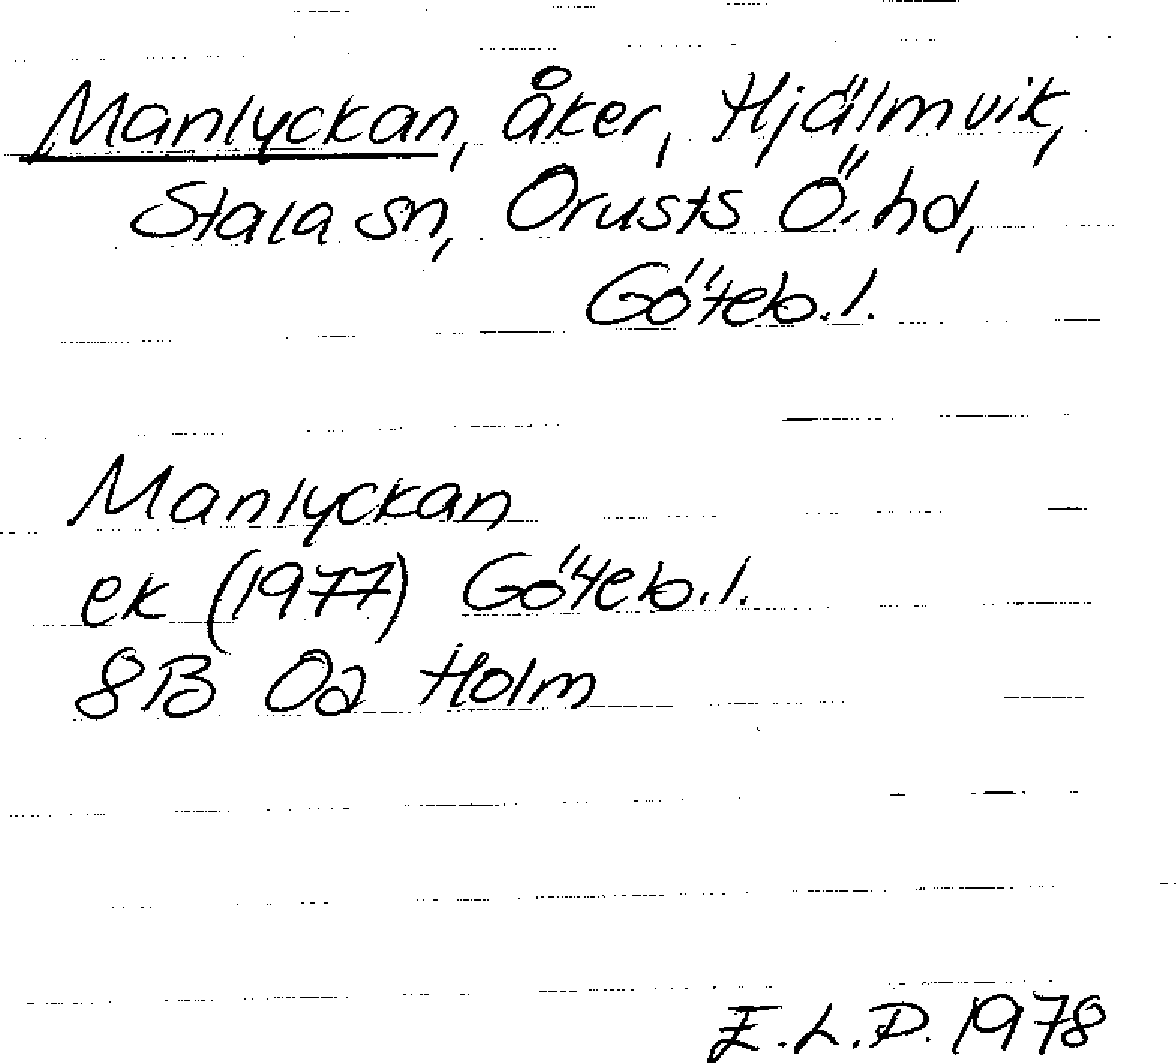 Manlyckan, åker, Hjälmvik,
Stala sn, Orusts Ö. hd,
Göteb. l.
Manlyckan
ek (1977) Göteb. l.
8B 0a Holm
E.L.D. 1978